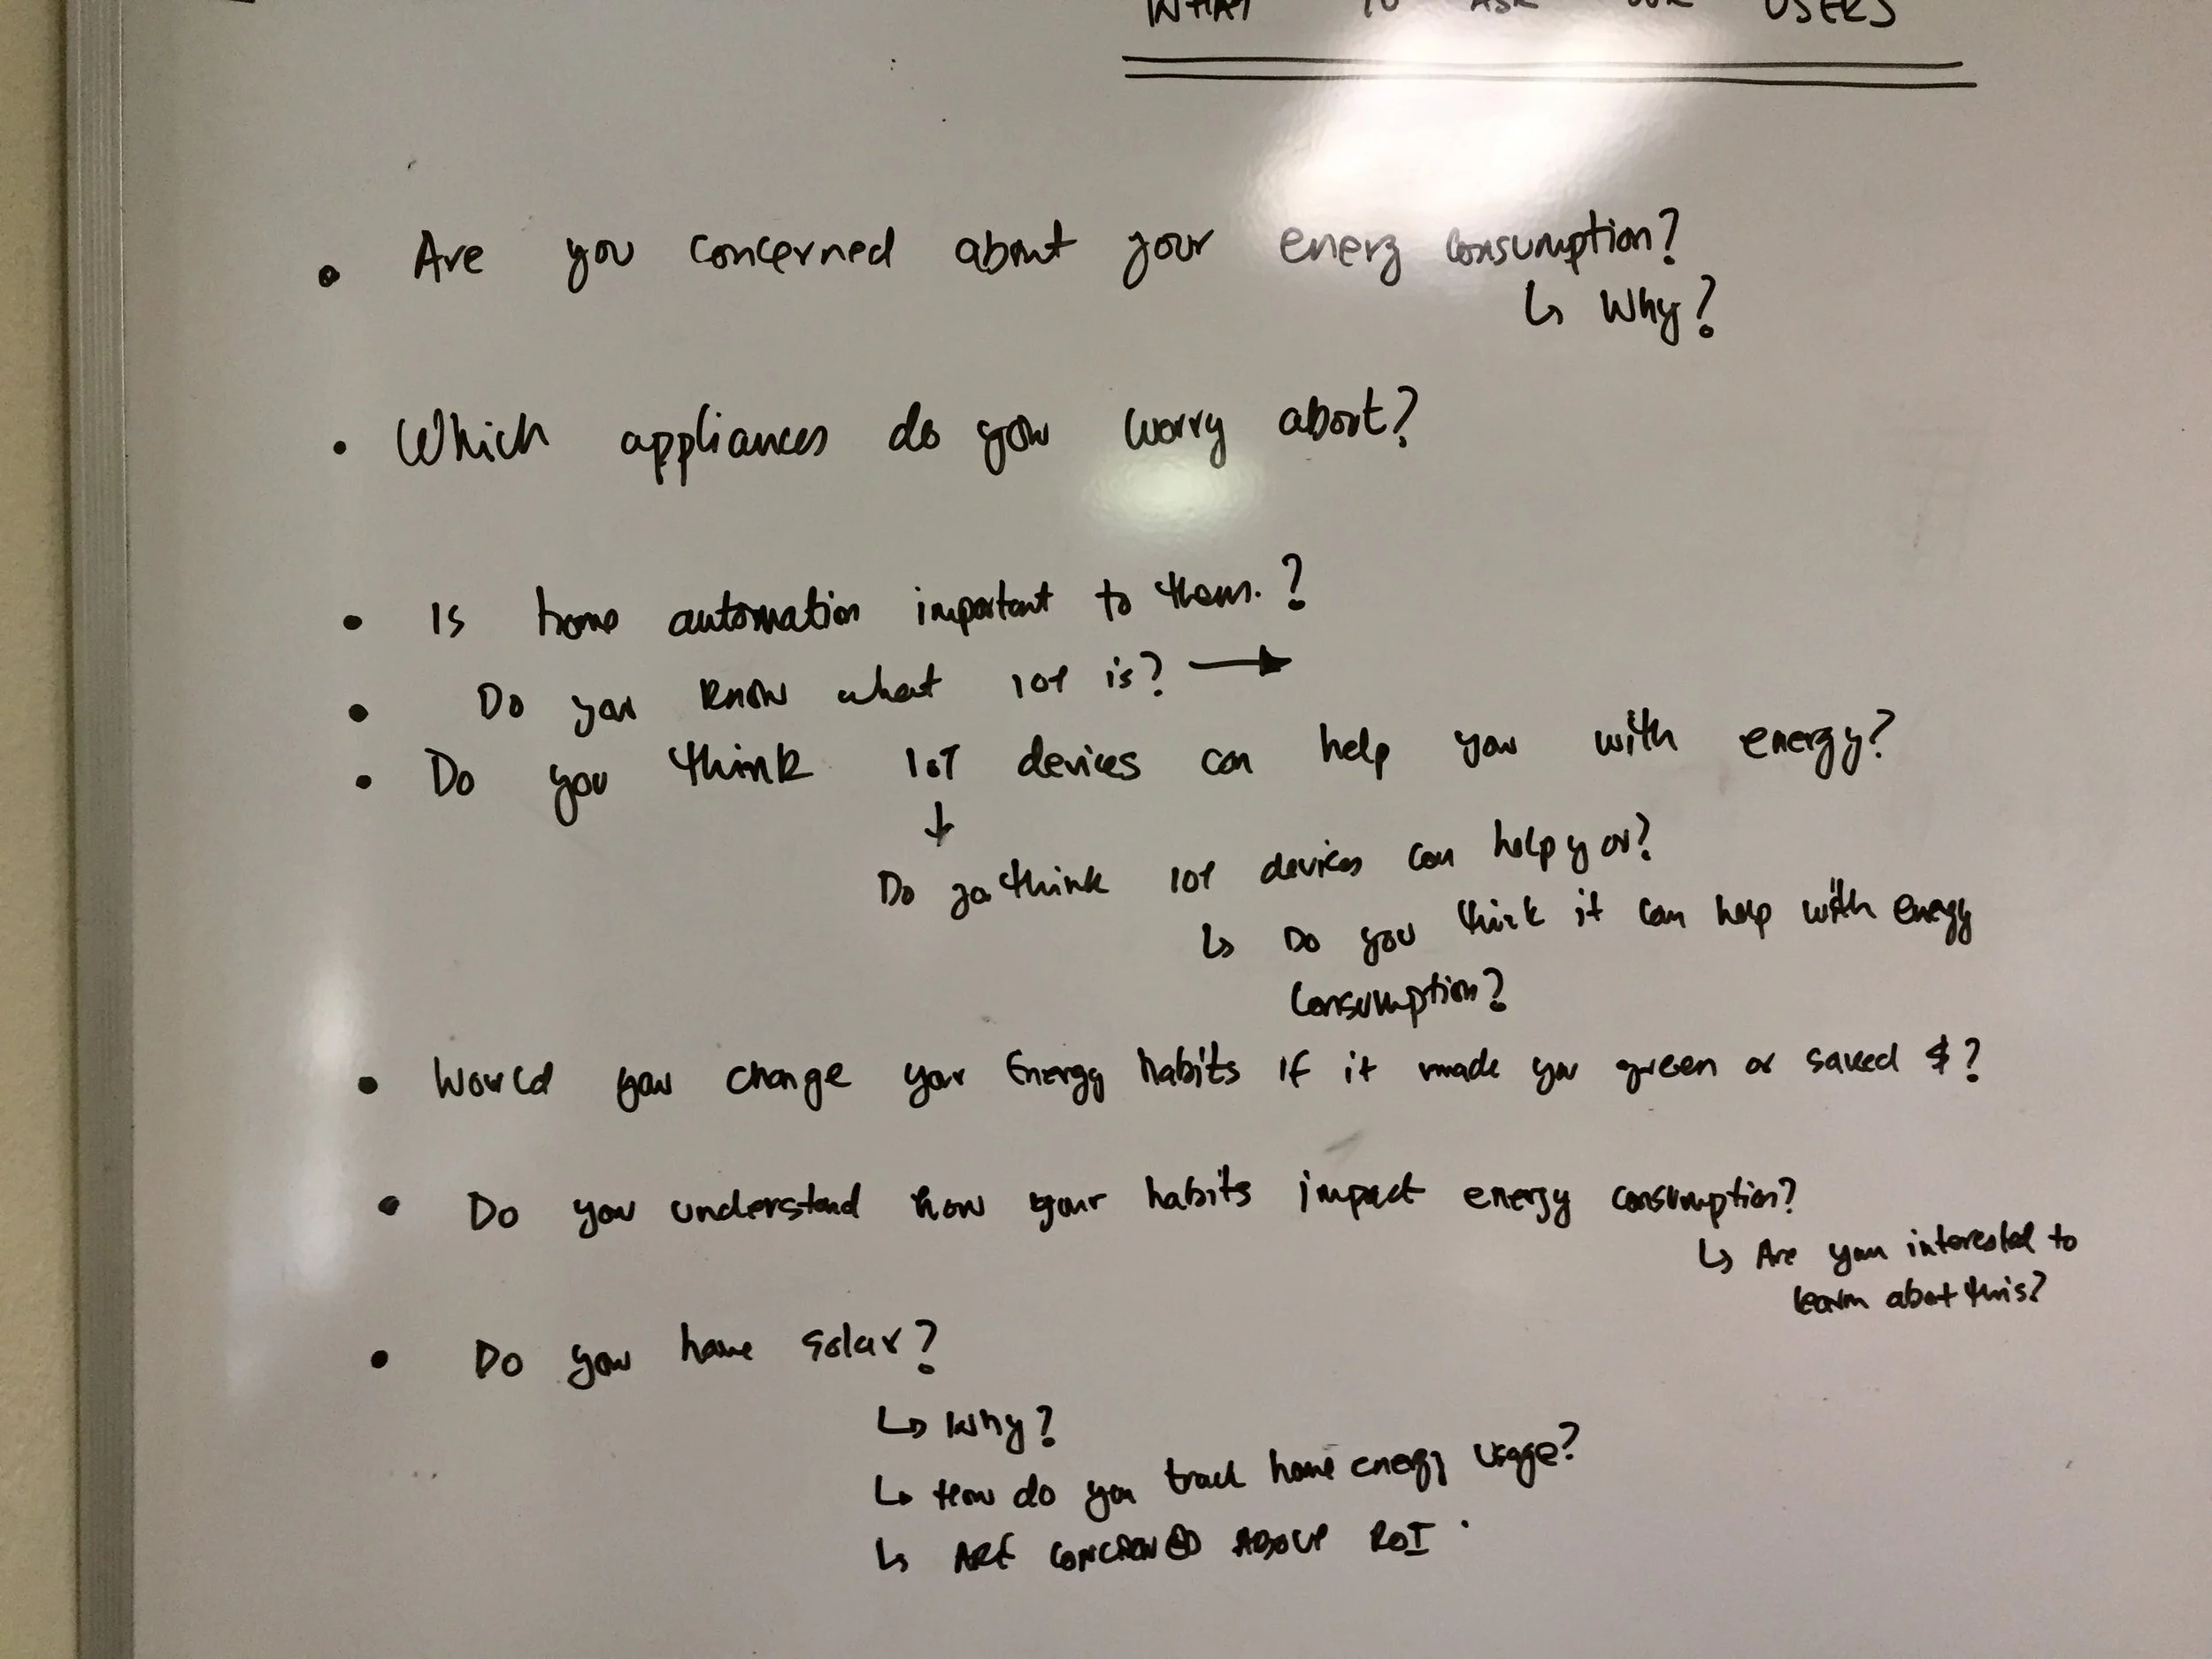 WHAT TO ASK OUR USERS
• Are you concerned about your energ consumption?
↳ Why?
• Which appliances do you worry about?
• Is home automation important to them.?
• Do you know what IOT is? →
• Do you think IoT devices can help you with energy?
↓
Do yo think IOT devices can help you?
↳ Do you think it can help with energy
consumption?
• Would you change your Energy habits if it made you green or saved $?
• Do you understand how your habits impact energy consumption?
↳ Are you interested to
learn about this?
• Do you have solar?
↳ Why?
↳ How do you track home energy usage?
↳ ARE CONCERNED ABOUT ROI